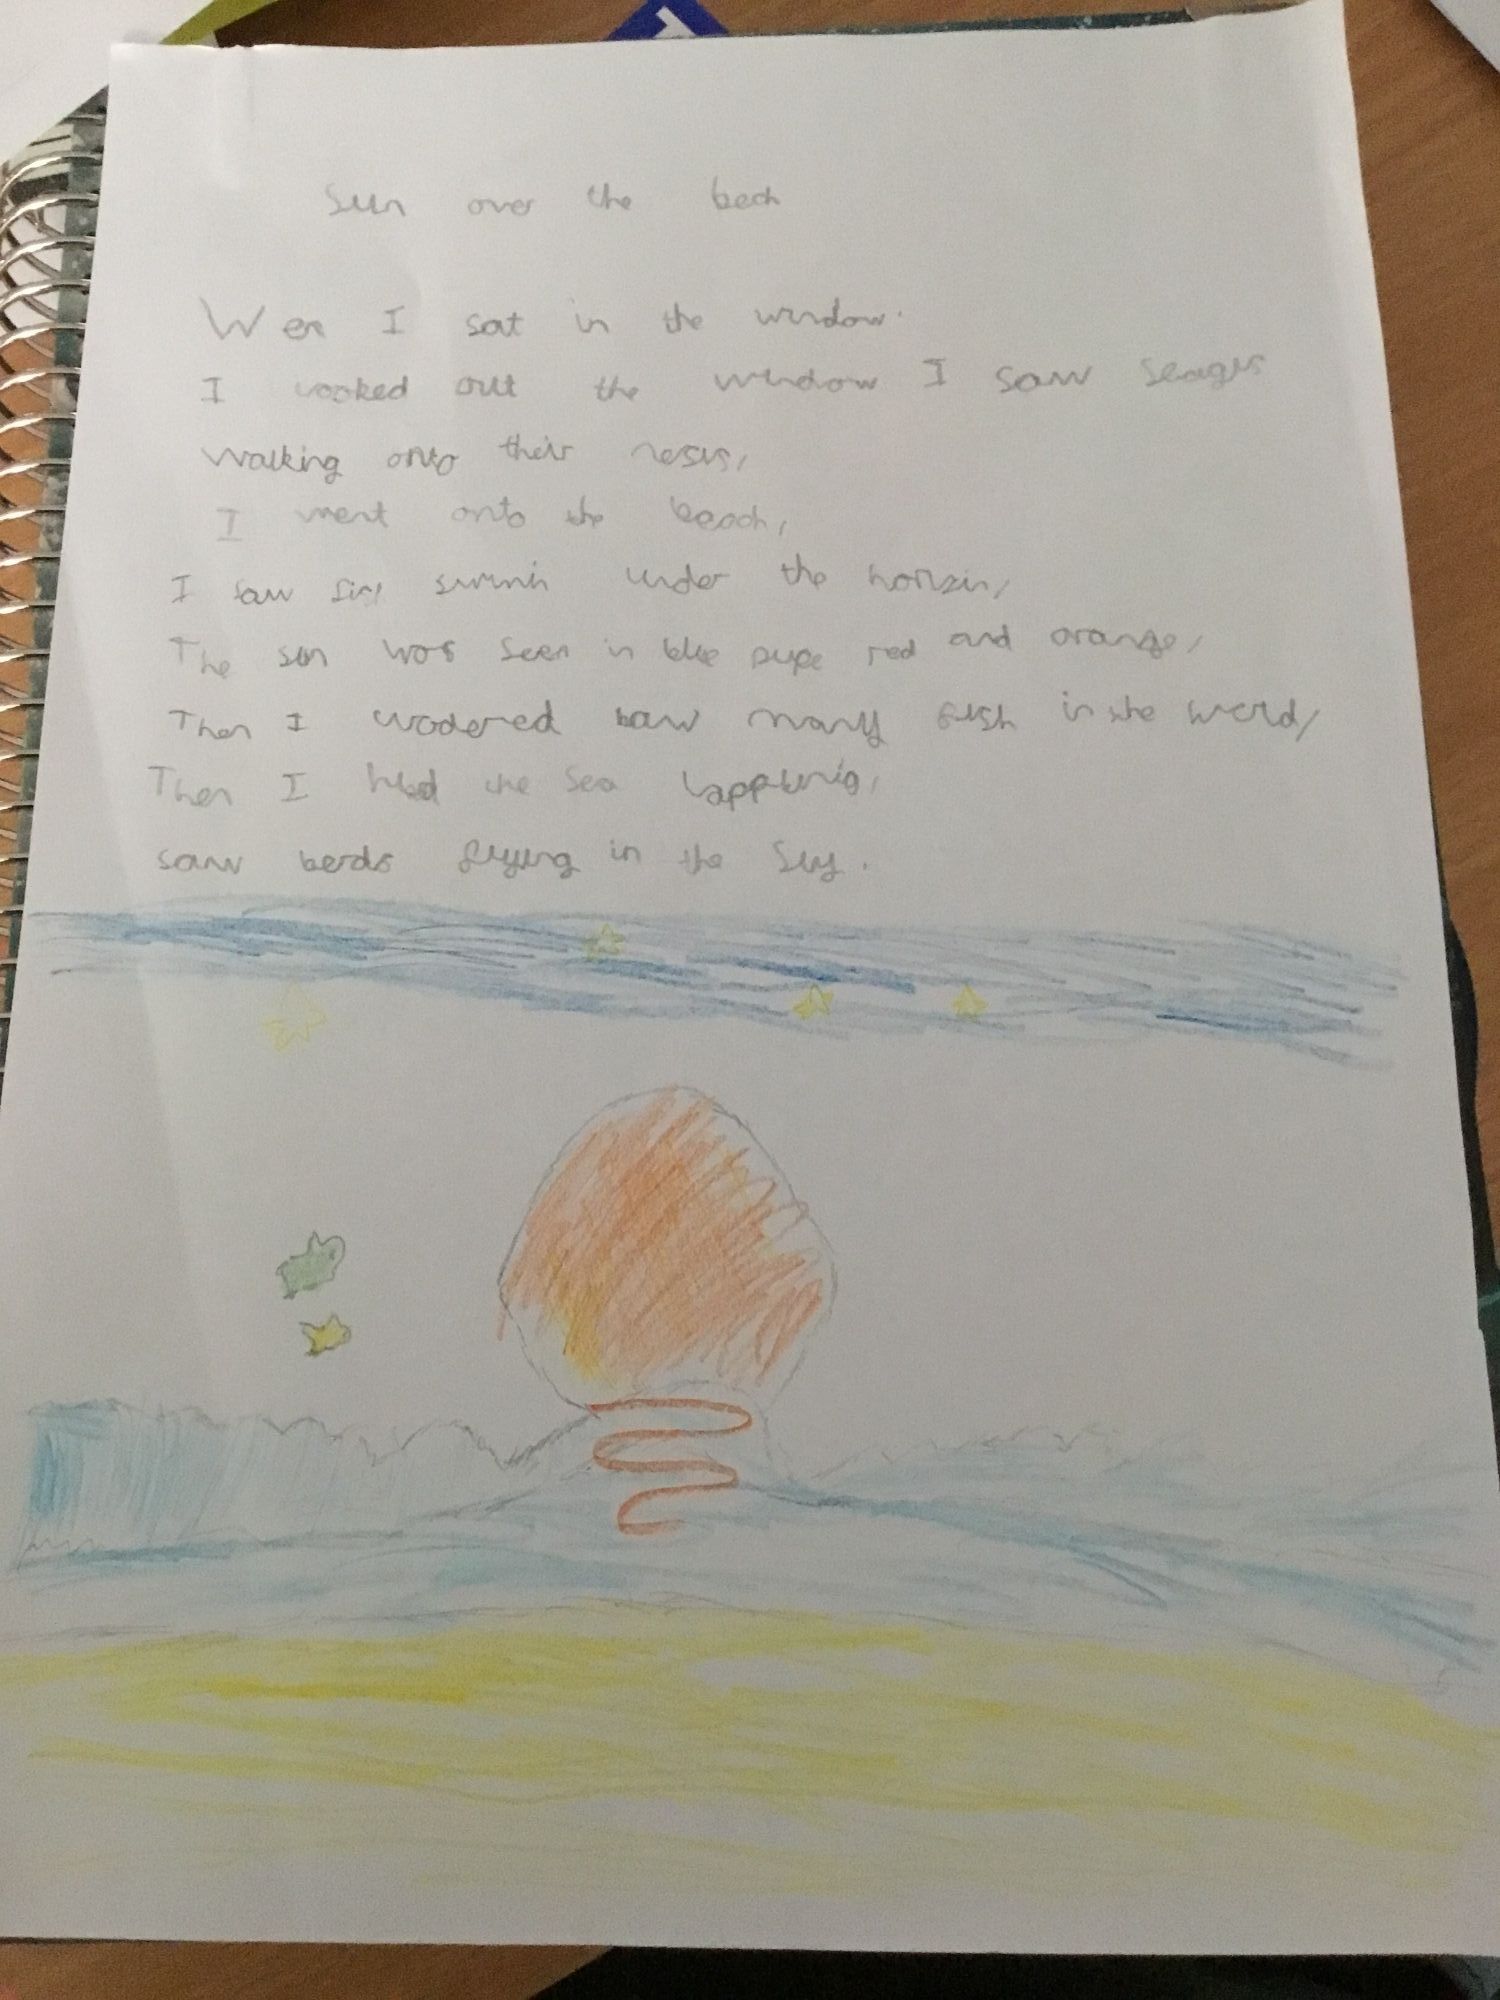 Sun over the beach
Wen I sat in the window.
I looked out the window I saw seaguls
walking onto their nests,
I went onto the beach,
I saw swimin under the horizin,
The sun was seen in blue pupe red and orange,
Then I wodered haw many fish in the werld,
Then I hed the sea lapping,
saw berds flying in the sky.